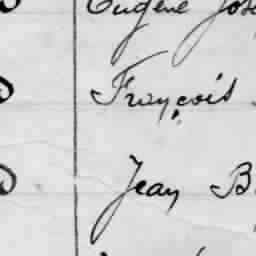 Eugène Jose
François
Jean B